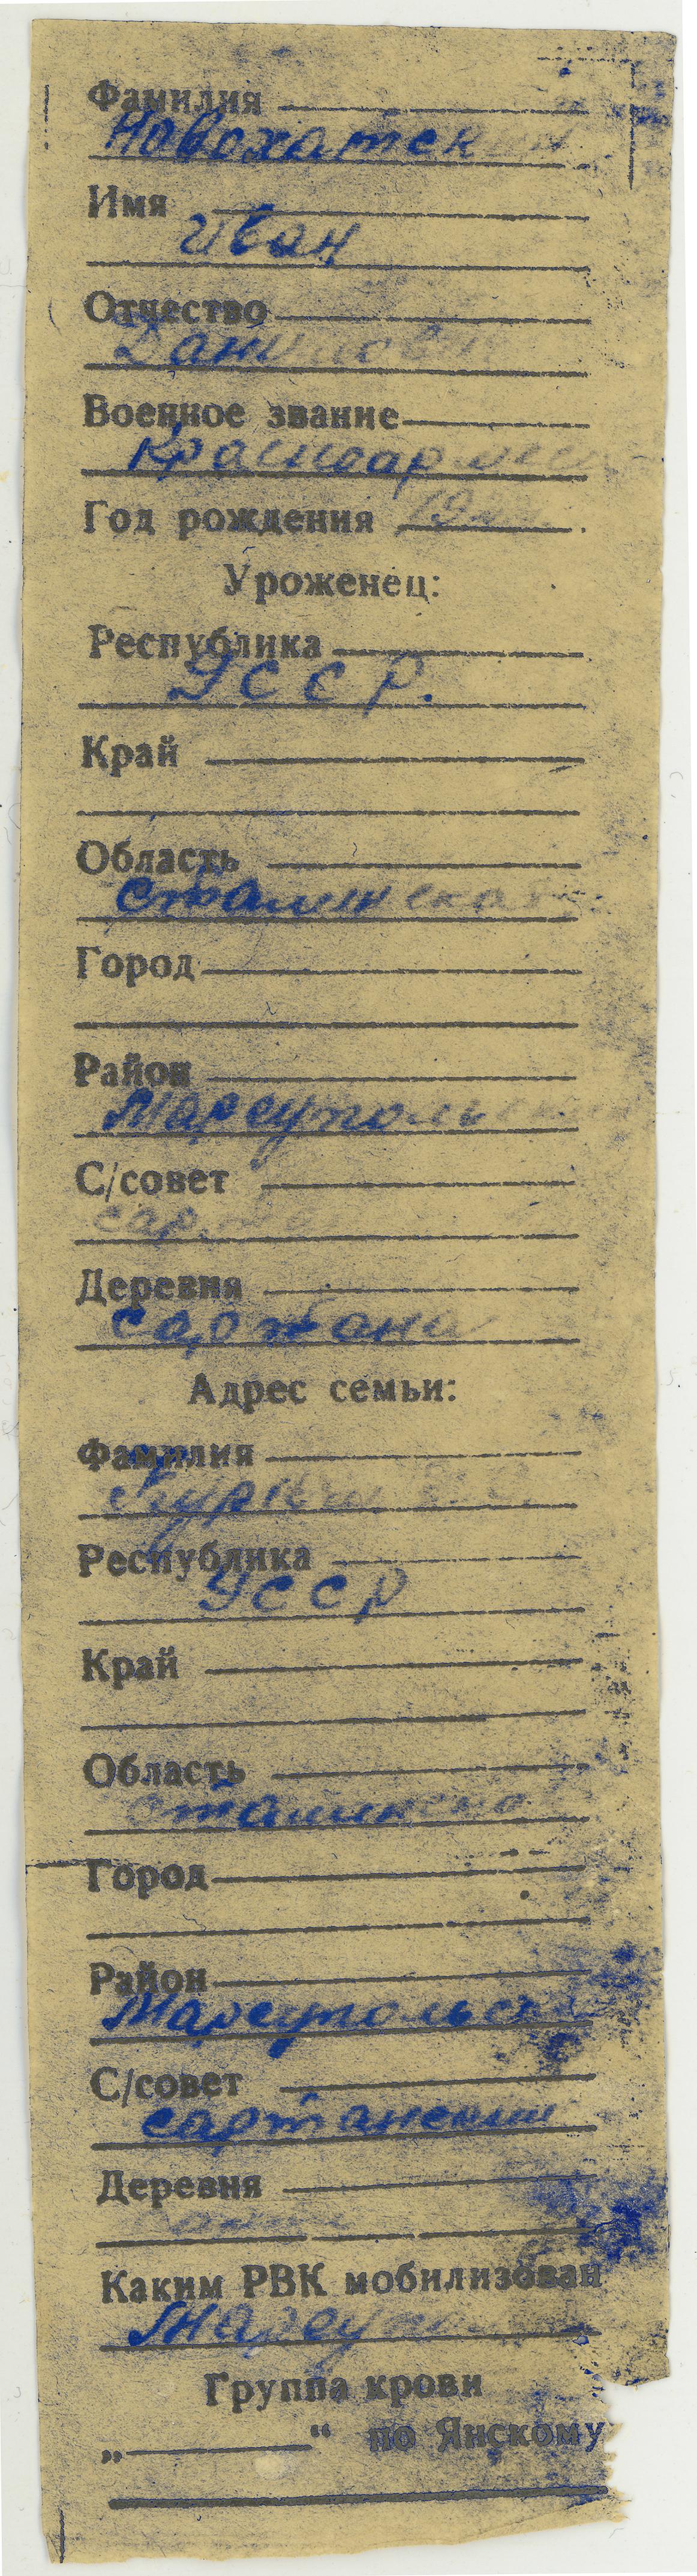 Фамилия
Новохатск
Имя
Иван
Отчество
Данилови
Военное звание
Красноармеец
Год рождения
Уроженец:
Республика
УССР.
Край
Область
Сталинская
Город
Район
Мареупольский
С/совет
Деревня
Сартана
Адрес семьи:
Фамилия
Республика
УССР
Край
Область
Сталинско
Город
Район
Мареупольск
С/совет
сартанский
Деревня
Каким РВК мобилизован
Мареу
Группа крови
„ “ по Янскому